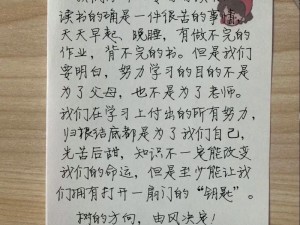 读书的确是一件很苦的事情,
天天早起、晚睡,有做不完的
作业,背不完的书。但是我们
要明白,努力学习的目的不是
为了父母,也不是为了老师。
我们在学习上付出的所有努力,
归根结底都是为了我们自己,
先苦后甜,知识不一定能改变
我们的命运,但是至少能让我
们拥有打开一扇门的“钥匙”。
树的方向,由风决定!